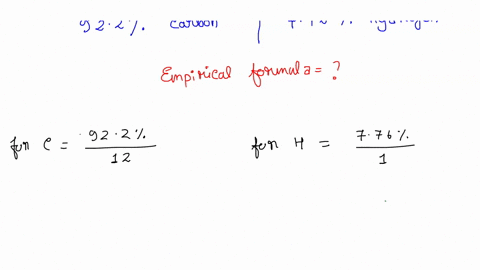 92.2% Carbon | 7.76% hydrogen
Empirical formula = ?
for C = 92.2% / 12 for H = 7.76% / 1